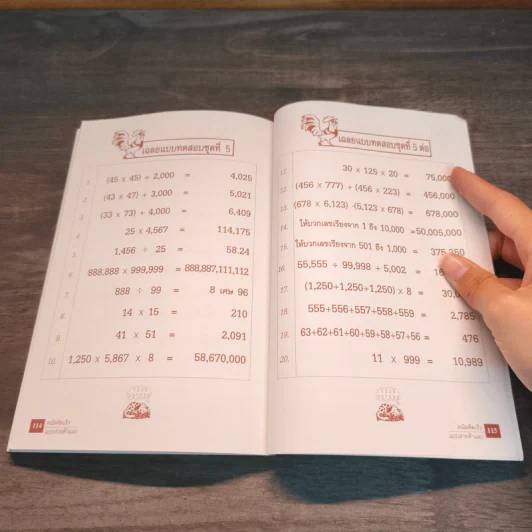 เฉลยแบบทดสอบชุดที่ 5
1. (45 x 45) + 2,000 = 4,025
2. (43 x 47) + 3,000 = 5,021
3. (33 x 73) + 4,000 = 6,409
4. 25 x 4,567 = 114,175
5. 1,456 ÷ 25 = 58.24
6. 888,888 x 999,999 = 888,887,111,112
7. 888 ÷ 99 = 8 เศษ 96
8. 14 x 15 = 210
9. 41 x 51 = 2,091
10. 1,250 x 5,867 x 8 = 58,670,000
114
คณิตคิดเร็ว
เฉลยแบบทดสอบชุดที่ 5 ต่อ
11. 30 x 125 x 20 = 75,000
12. (456 x 777) + (456 x 223) = 456,000
13. (678 x 6,123) -(5,123 x 678) = 678,000
14. ให้บวกเลขเรียงจาก 1 ถึง 10,000 =50,005,000
15. ให้บวกเลขเรียงจาก 501 ถึง 1,000 = 375,250
16. 55,555 + 99,998 + 5,002 =
17. (1,250+1,250+1,250) x 8 =
18. 555+556+557+558+559 = 2,785
19. 63+62+61+60+59+58+57+56 = 476
20. 11 x 999 = 10,989
คณิตคิดเร็ว
115